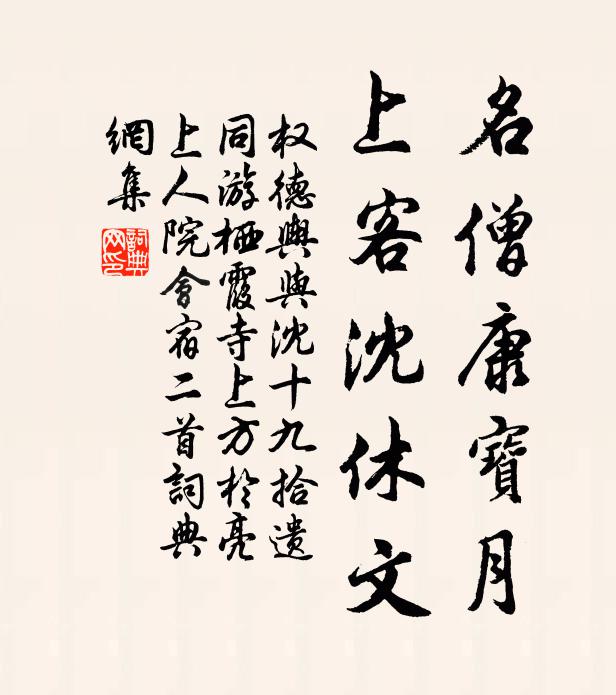 名僧康寶月
上客沈休文
权德輿與沈十九拾遗
同游栖霞寺上方於亮
上人院會宿二首詞典
網集
詞典
网印